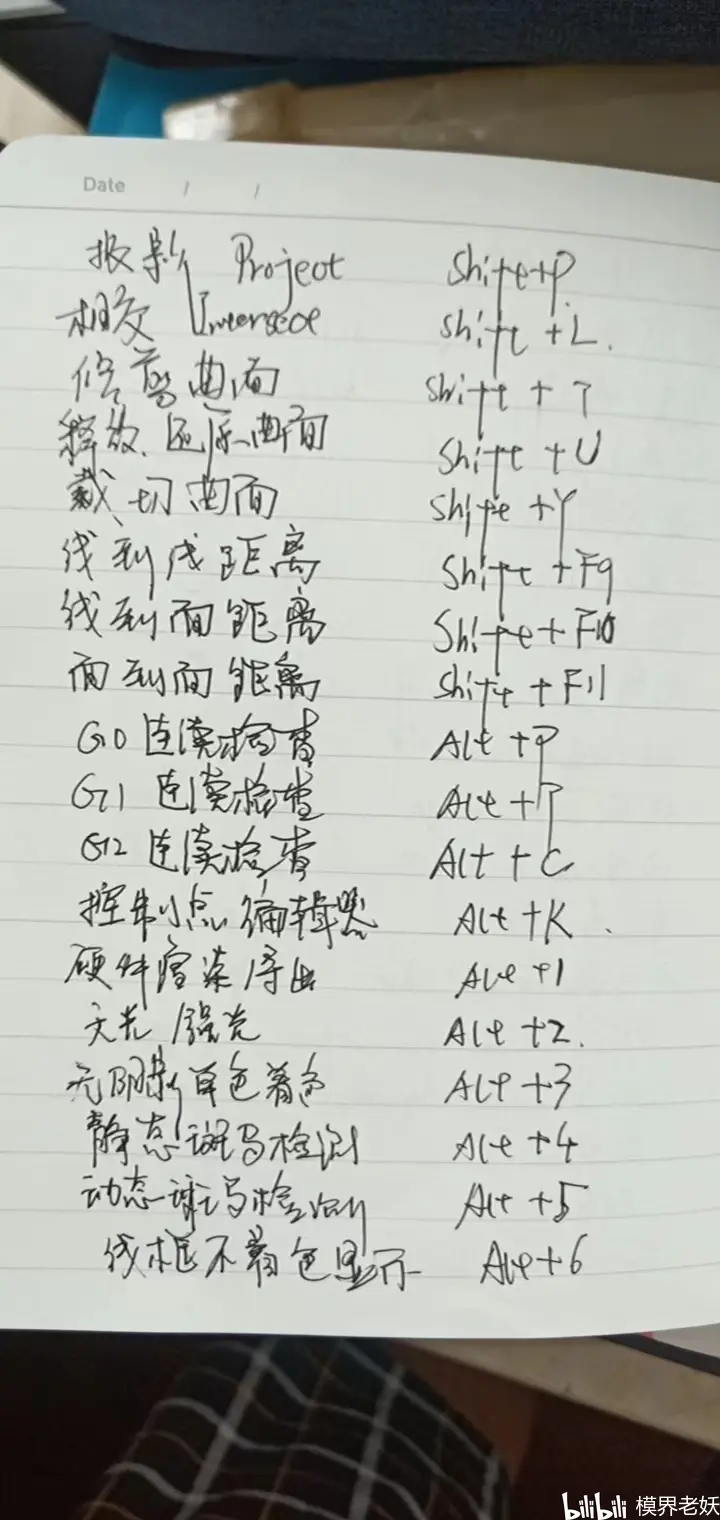 Date / /
投影 Project Shift+P
相交 Intersect Shift+L.
修剪曲面 Shift+T
释放、还原曲面 Shift+U
裁切曲面 Shift+Y
线到线距离 Shift+F9
线到面距离 Shift+F10
面到面距离 Shift+F11
G0 连续检查 Alt+P
G1 连续检查 Alt+T
G2 连续检查 Alt+C
控制点编辑器 Alt+K.
硬件渲染导出 Alt+1
Alt+2.
无阴影单色着色 Alt+3
静态斑马检测 Alt+4
动态斑马检测 Alt+5
线框不着色显示 Alt+6
bilibili 模界老妖